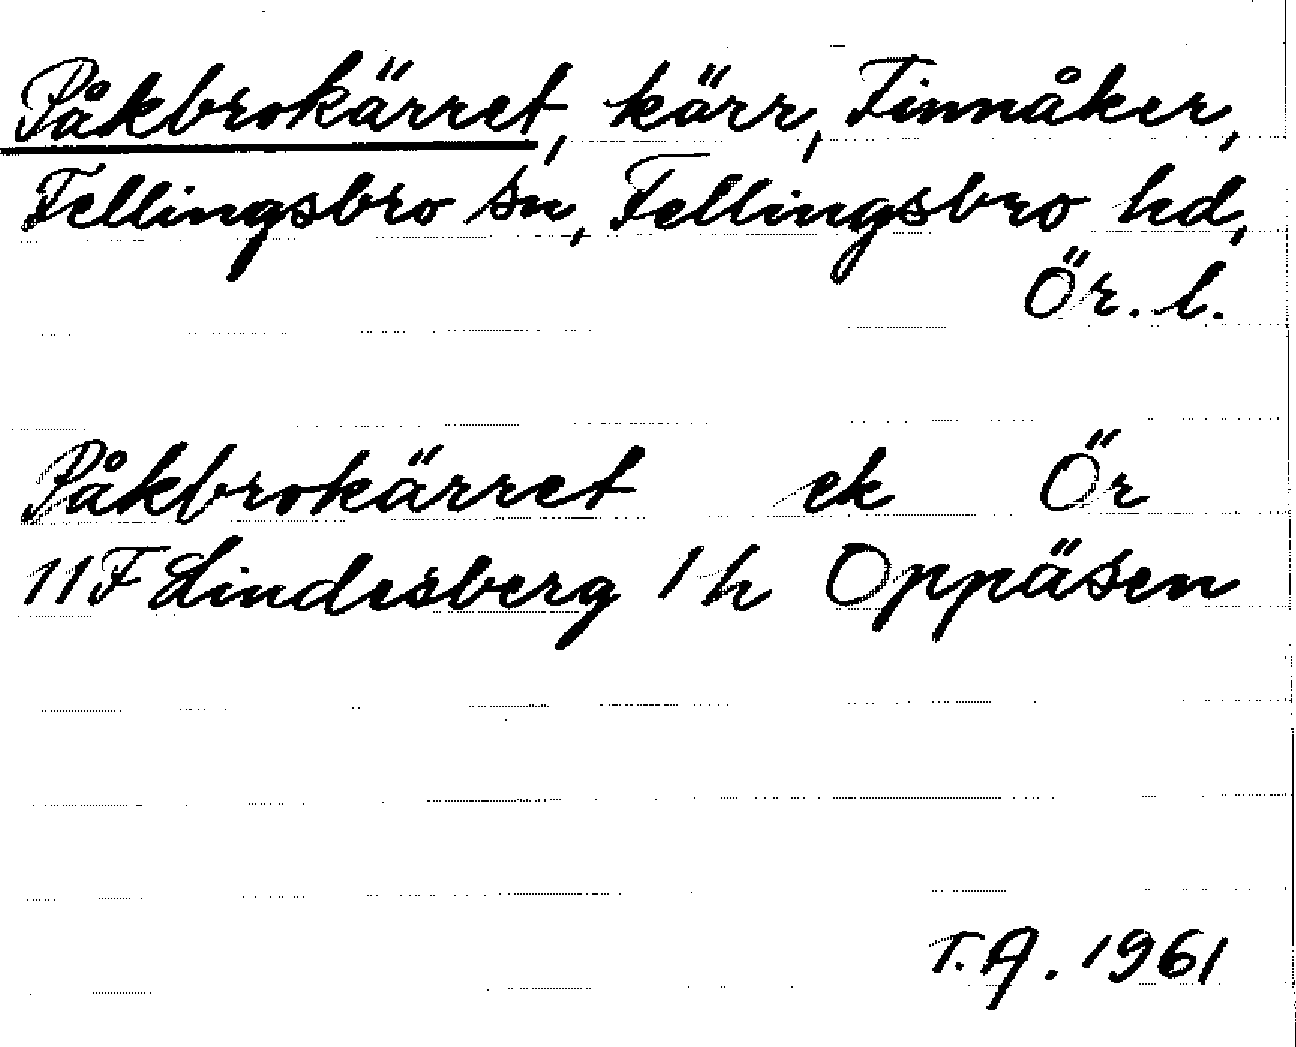 Påkbrokärret, kärr, Finnåker,
Fellingsbro sn, Fellingsbro hd,
Ör. l.
Påkbrokärret ek Ör
11F Lindesberg 1 h Oppåsen
T.A. 1961